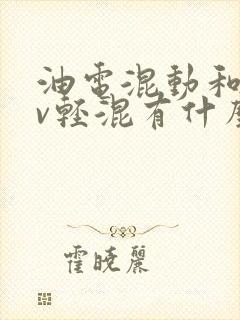 油電混動和
v輕混有什麼
霍曉麗